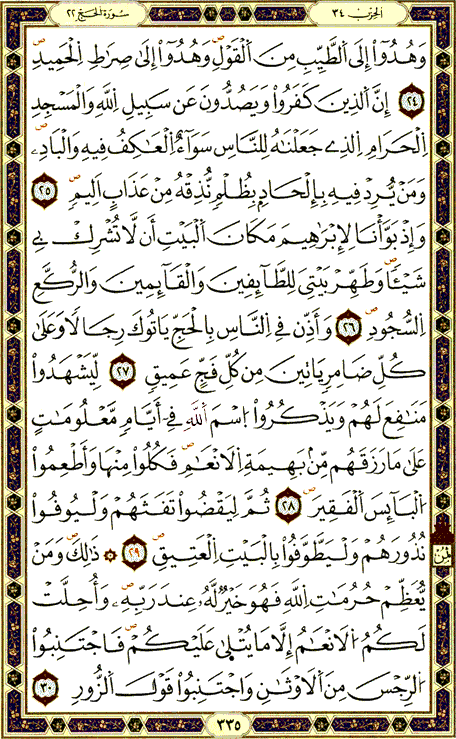 سُورَةُ الحَجّ ٢٢
الحِزْب ٣٤
وَهُدُوٓاْ إِلَى اَلطَّيِّبِ مِنَ اَلْقَوْلِ وَهُدُوٓاْ إِلَىٰ صِرَٰطِ اِلْحَمِيدِ
٢٤ إِنَّ اَلذِينَ كَفَرُواْ وَيَصُدُّونَ عَن سَبِيلِ اِللَّهِ وَالْمَسْجِدِ
اِلْحَرَامِ اِلذِے جَعَلْنَٰهُ لِلنَّاسِ سَوَآءٌ اُلْعَٰكِفُ فِيهِ وَالْبَادِۦ
وَمَنْ يُّرِدْ فِيهِ بِإِلْحَادِۢ بِظُلْمٍ نُّذِقْهُ مِنْ عَذَابٍ اَلِيمٍ ٢٥
وَإِذْ بَوَّأْنَا لِإِبْرَٰهِيمَ مَكَانَ اَلْبَيْتِ أَن لَّا تُشْرِكْ بِے
شَيْـٔاً وَطَهِّرْ بَيْتِيَ لِلطَّآئِفِينَ وَالْقَآئِمِينَ وَالرُّكَّعِ
اِلسُّجُودِ ٢٦ وَأَذِّن فِے اِلنَّاسِ بِالْحَجِّ يَاتُوكَ رِجَالاً وَعَلَىٰ
كُلِّ ضَامِرٍ يَاتِينَ مِن كُلِّ فَجٍّ عَمِيقٍ ٢٧ لِّيَشْهَدُواْ
مَنَٰفِعَ لَهُمْ وَيَذْكُرُواْ اُسْمَ اَللَّهِ فِےٓ أَيَّامٍ مَّعْلُومَٰتٍ
عَلَىٰ مَا رَزَقَهُم مِّنۢ بَهِيمَةِ اِلَانْعَٰمِ فَكُلُواْ مِنْهَا وَأَطْعِمُواْ
اُلْبَآئِسَ اَلْفَقِيرَ ٢٨ ثُمَّ لِيَقْضُواْ تَفَثَهُمْ وَلْيُوفُواْ
نُذُورَهُمْ وَلْيَطَّوَّفُواْ بِالْبَيْتِ اِلْعَتِيقِ ٢٩ ۞ ذَٰلِكَ وَمَنْ
يُّعَظِّمْ حُرُمَٰتِ اِللَّهِ فَهُوَ خَيْرٌ لَّهُۥ عِندَ رَبِّهِۦ وَأُحِلَّتْ
لَكُمُ اُلَانْعَٰمُ إِلَّا مَا يُتْلَىٰ عَلَيْكُمْ فَاجْتَنِبُواْ
اُلرِّجْسَ مِنَ اَلَاوْثَٰنِ وَاجْتَنِبُواْ قَوْلَ اَلزُّورِ ٣٠
٣٣٥